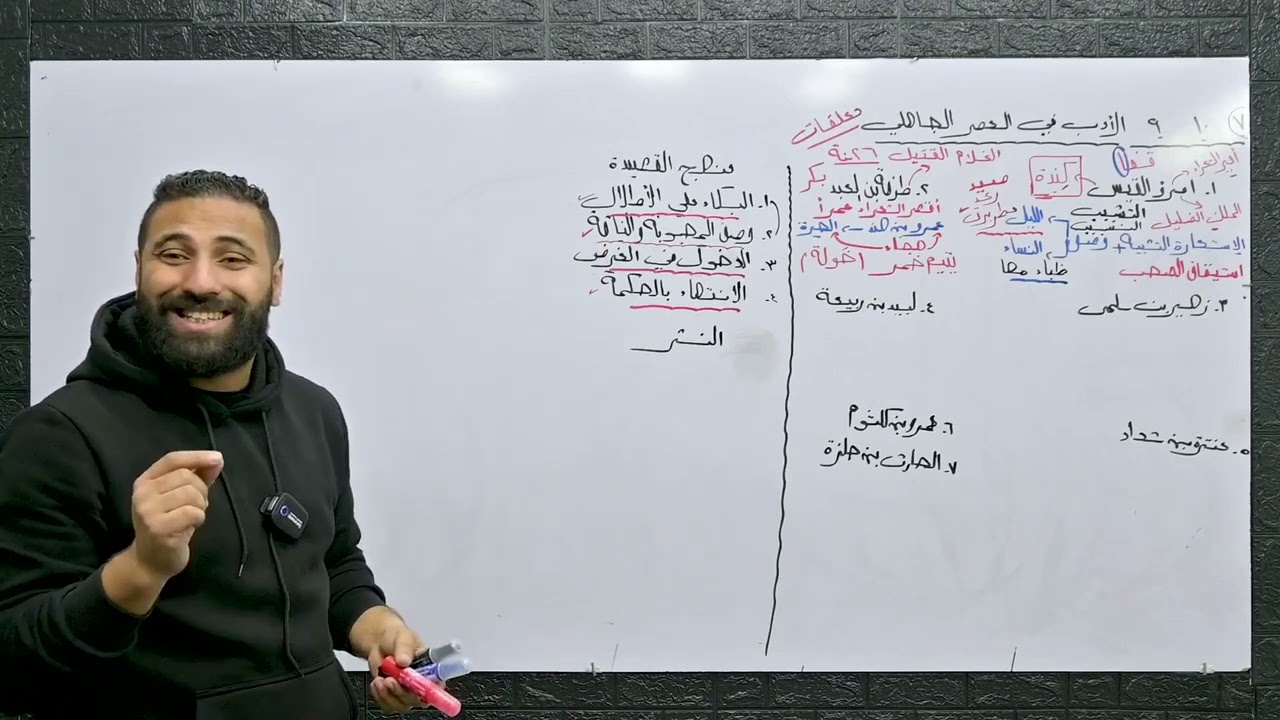 ٧ ١٠ ٩ الأدب في العصر الجاهلي معلقات
أمير الشعراء
١. امرؤ القيس كِندة
الملك الضليل
التشبيب
النسيب
الليل
النساء
الاستعارة التشبيه وصف
استيقاف الصحب
ظباء مها
الغلام القتيل ٢٦ سنة
٢. طرفة ابن العبد بكر
أقصر الشعراء عمراً
عمرو بن هند الحيرة
هجاء
يتيم خمر (خولة)
٣. زهير بن سلمى
٤. لبيد بن ربيعة
٥. عنترة بن شداد
٦. عمرو بن كلثوم
٧. الحارث بن حلزة
منهج القصيدة
١. البكاء على الأطلال
٢. وصل المحبوبة والناقة
٣. الدخول في الغرض
٤. الانتهاء بالحكمة
النثر